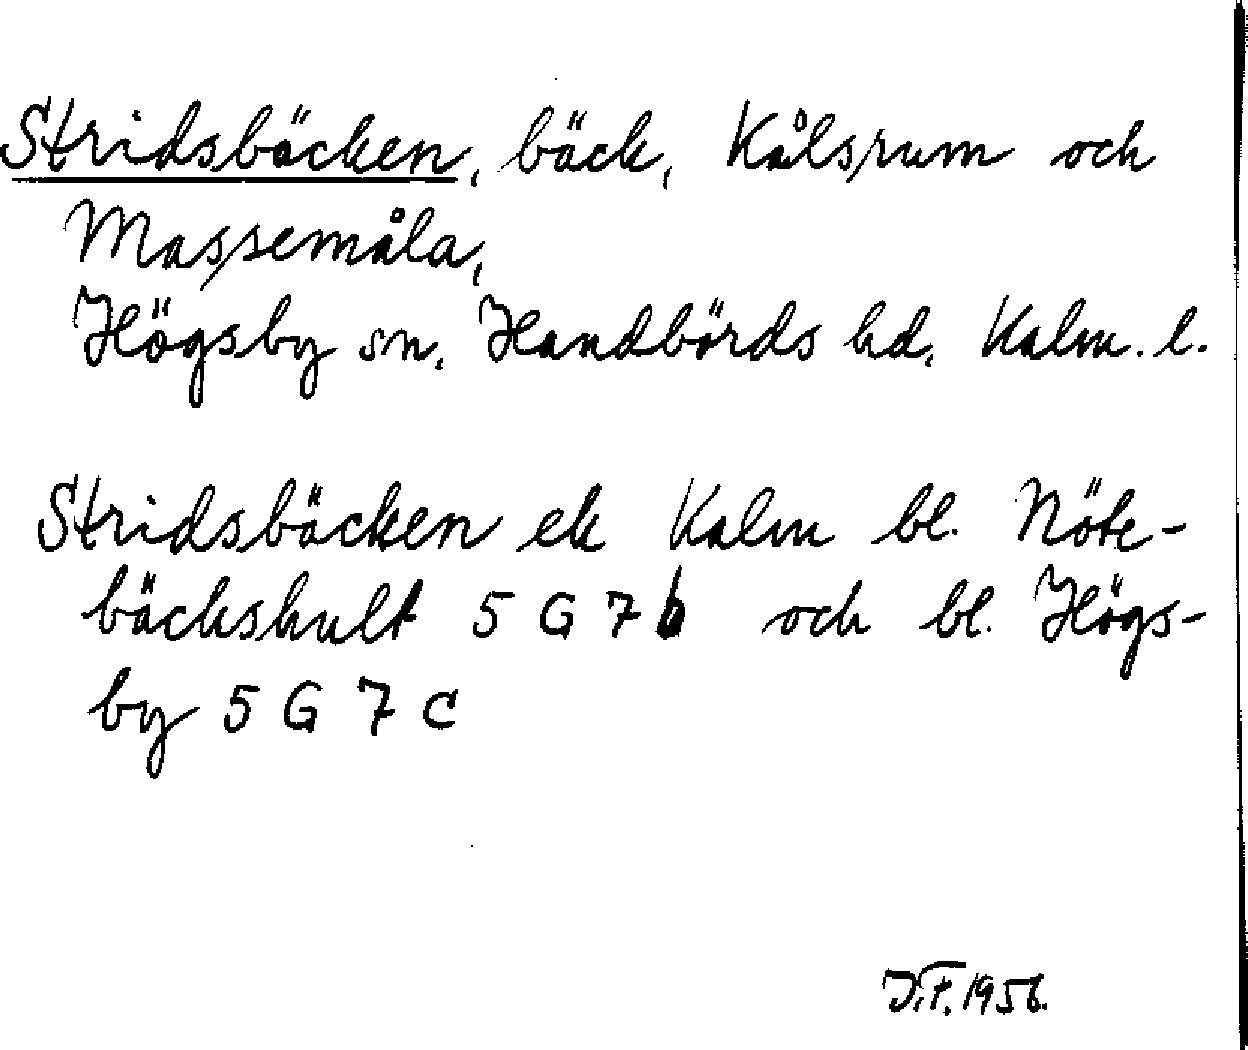 Stridsbäcken, bäck, Kålsrum och
Massemåla,
Högsby sn. Handbörds hd. Kalm. l.
Stridsbäcken ek Kalm bl. Nöte-
bäckshult 5 G 7 b och bl. Högs-
by 5 G 7 c
J.F. 1956.